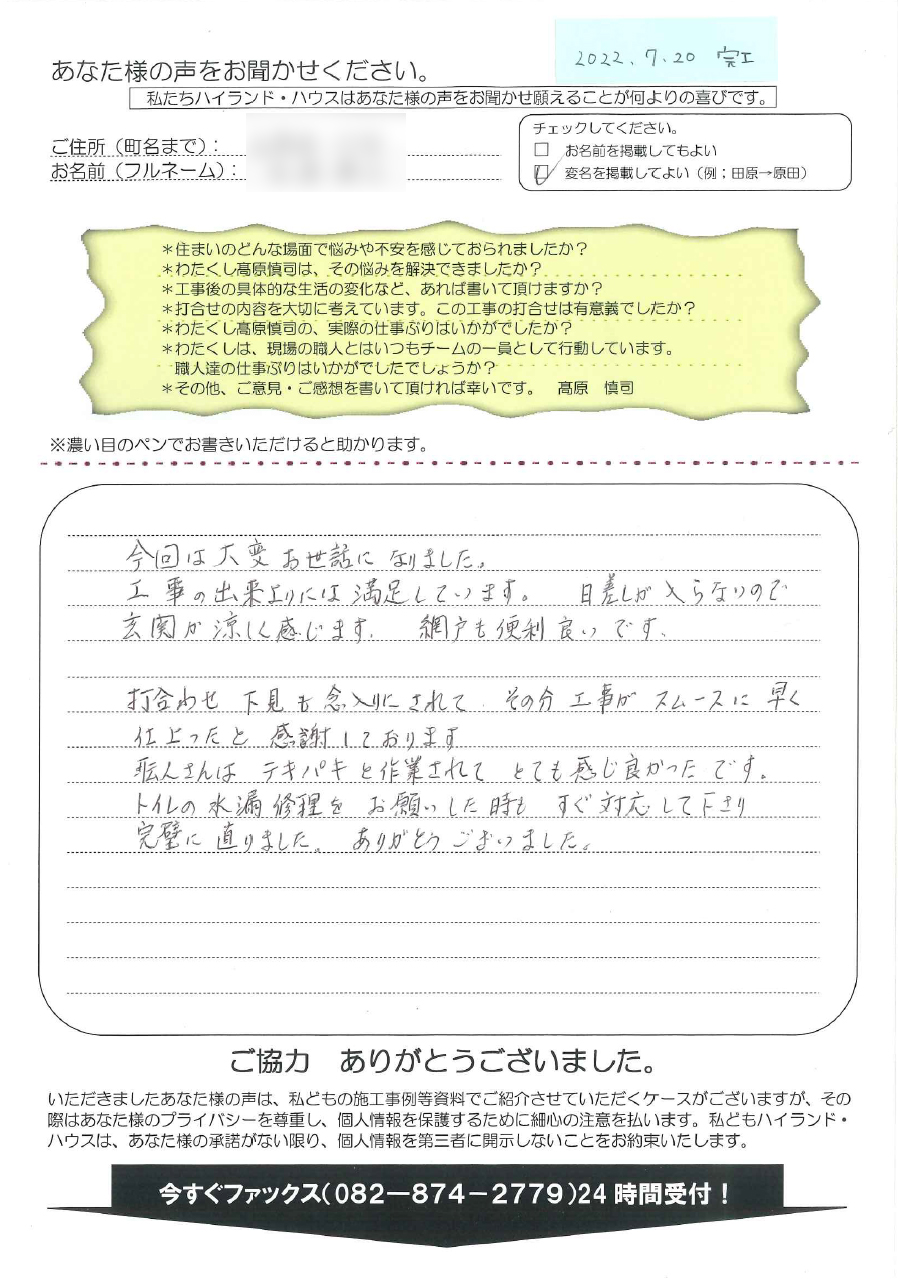 2022.7.20 完工
あなた様の声をお聞かせください。
私たちハイランド・ハウスはあなた様の声をお聞かせ願えることが何よりの喜びです。
ご住所（町名まで）：
お名前（フルネーム）：
チェックしてください。
□ お名前を掲載してもよい
☑ 変名を掲載してよい（例；田原→原田）
＊住まいのどんな場面で悩みや不安を感じておられましたか？
＊わたくし髙原慎司は、その悩みを解決できましたか？
＊工事後の具体的な生活の変化など、あれば書いて頂けますか？
＊打合せの内容を大切に考えています。この工事の打合せは有意義でしたか？
＊わたくし髙原慎司の、実際の仕事ぶりはいかがでしたか？
＊わたくしは、現場の職人とはいつもチームの一員として行動しています。
職人達の仕事ぶりはいかがでしたでしょうか？
＊その他、ご意見・ご感想を書いて頂ければ幸いです。 髙原 慎司
※濃い目のペンでお書きいただけると助かります。
今回は大変お世話になりました。
工事の出来上りには満足しています。 日差しが入らないので
玄関が涼しく感じます。 網戸も便利良いです。
打合わせ 下見も念入りにされて その分工事がスムースに早く
仕上ったと 感謝しております
職人さんは テキパキと作業されて とても感じ良かったです。
トイレの水漏修理を お願いした時も すぐ対応して下さり
完璧に直りました。 ありがとうございました。
ご協力 ありがとうございました。
いただきましたあなた様の声は、私どもの施工事例等資料でご紹介させていただくケースがございますが、その
際はあなた様のプライバシーを尊重し、個人情報を保護するために細心の注意を払います。私どもハイランド・
ハウスは、あなた様の承諾がない限り、個人情報を第三者に開示しないことをお約束いたします。
今すぐファックス（082－874－2779）24時間受付！